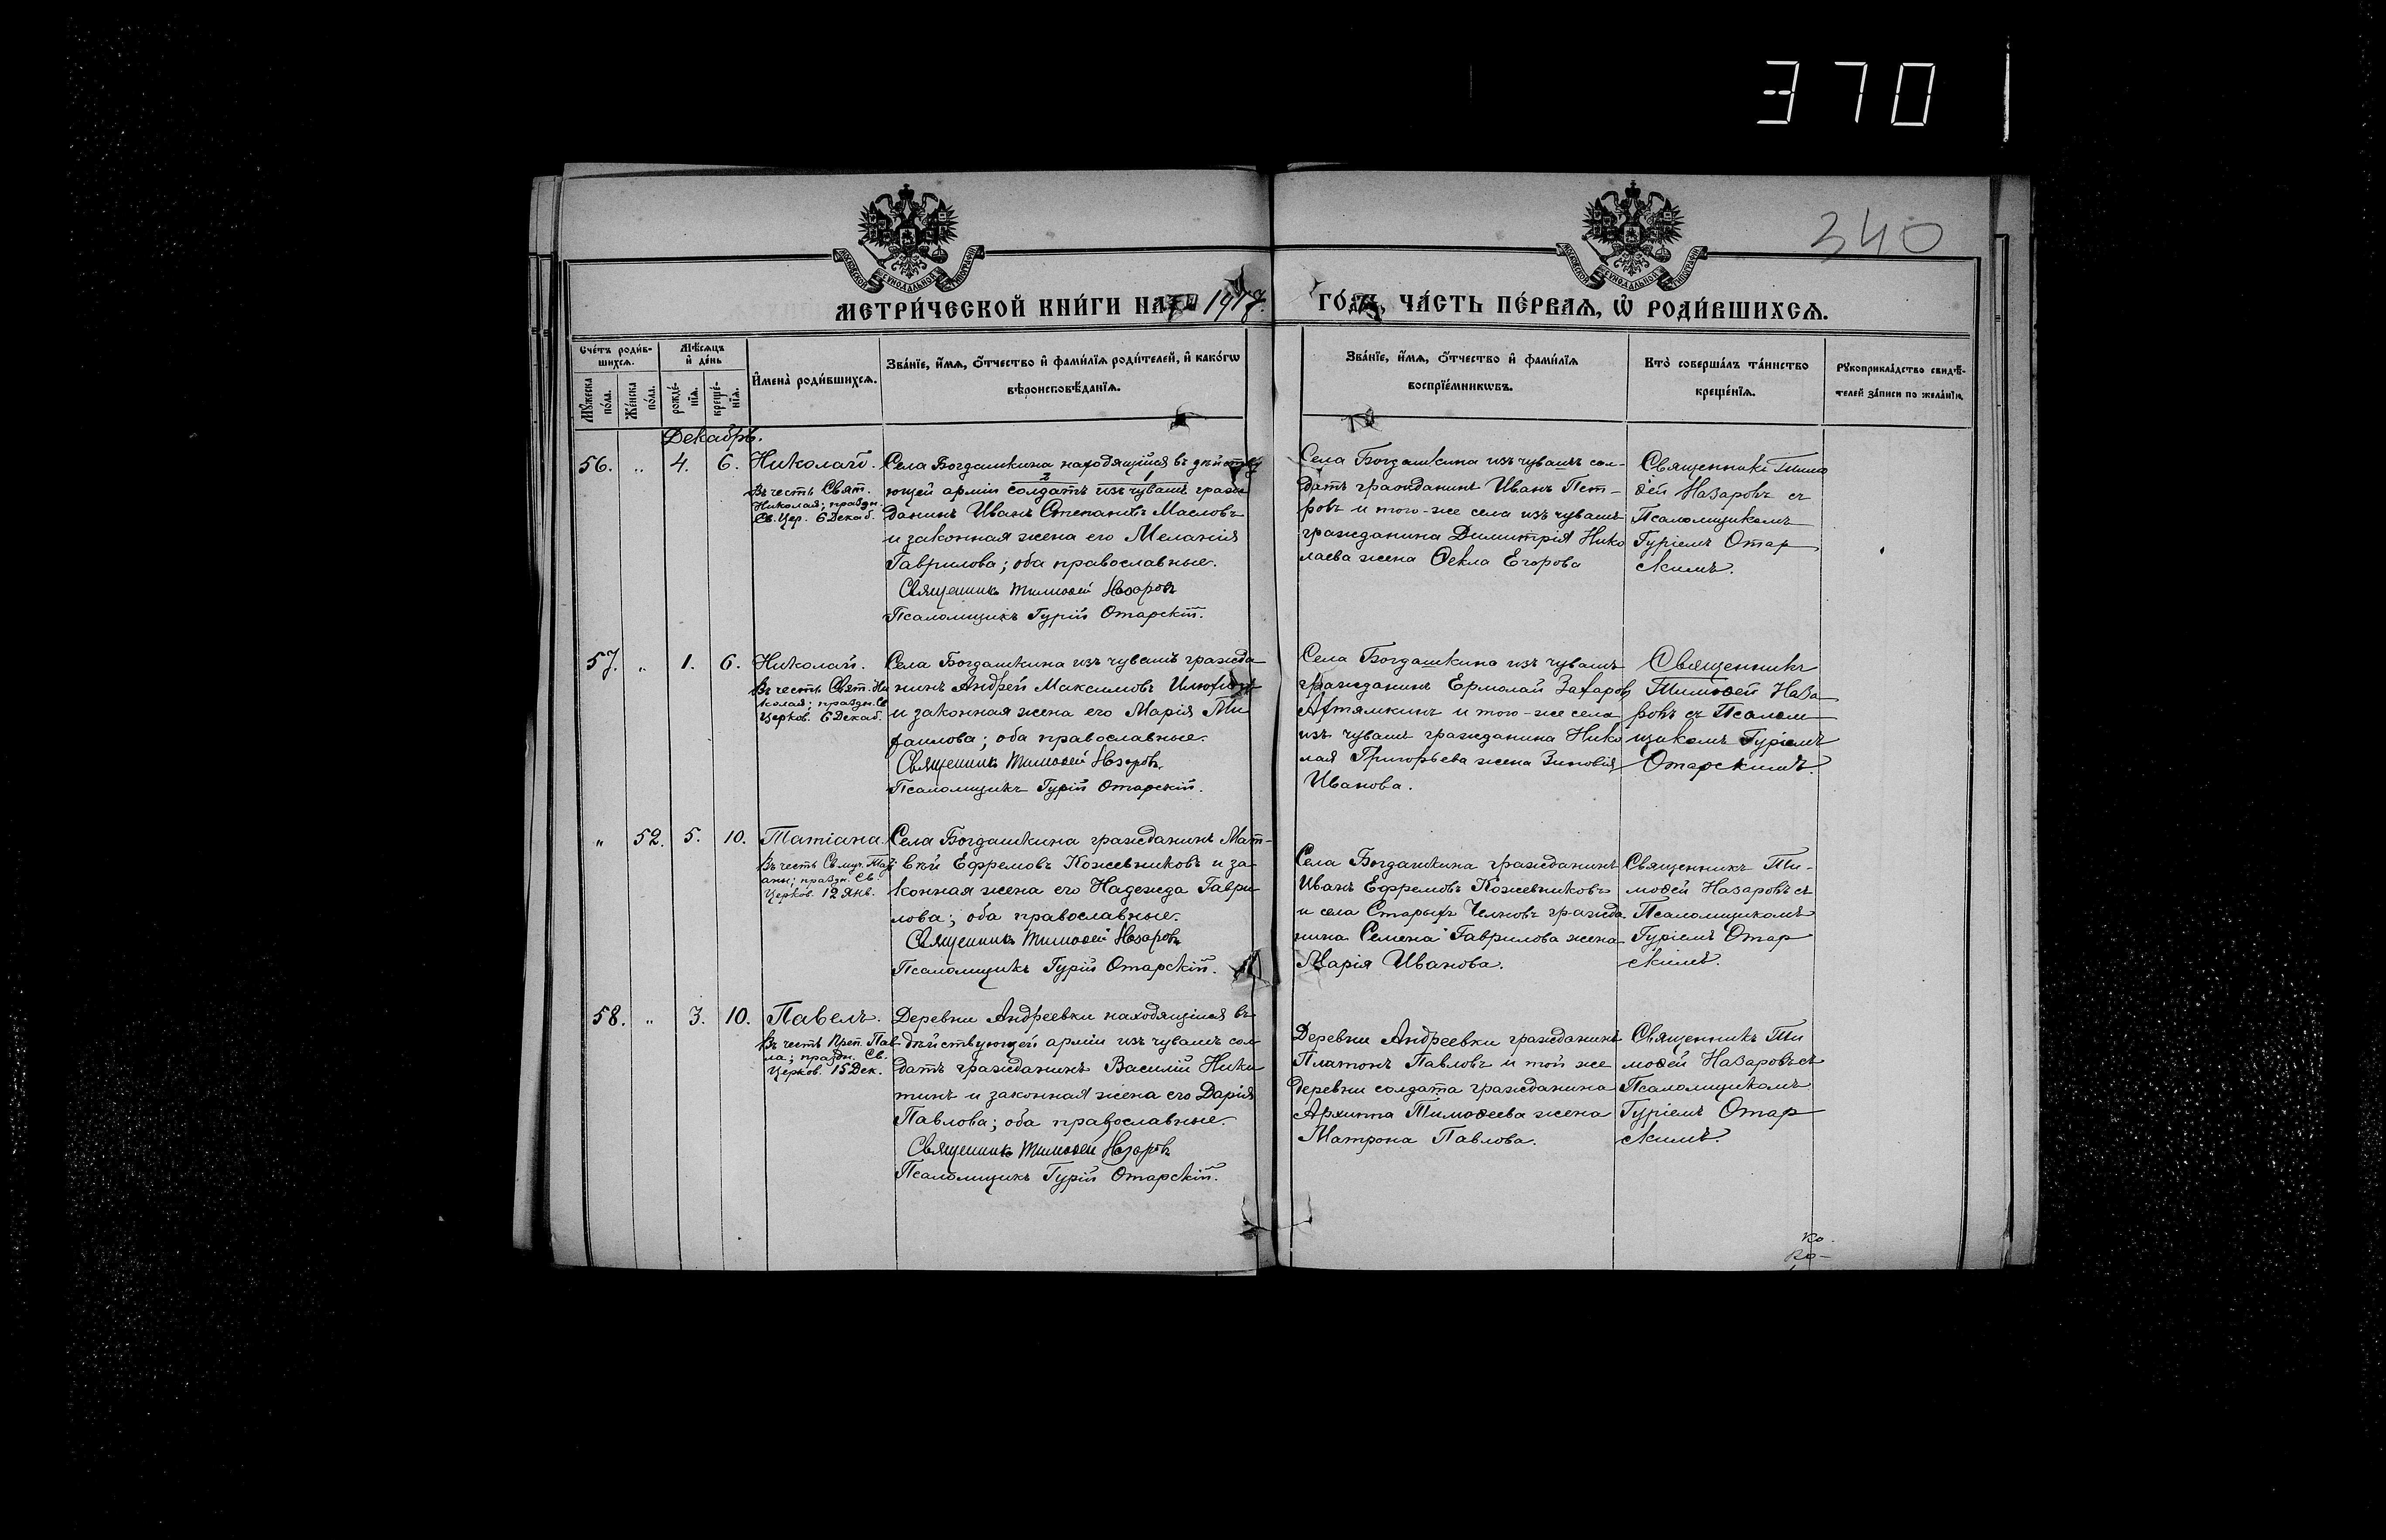 370
340
МЕТРИ́ЧЕСКОЙ КНИ́ГИ НА 1917
ГО́ДЪ, ЧА́СТЬ ПЕ́РВАѦ, Ѡ РОДИ́ВШИХСѦ.
Сче́тъ роди́в-
шихсѧ.
Мѣ́сѧцъ
и҆ де́нь
Мꙋ́жеска
по́ла.
Же́нска
по́ла.
рожде́-
нїѧ.
креще́-
нїѧ.
И҆мена̀ роди́вшихсѧ.
Зва́нїе, и҆́мѧ, ѻ҆́тчество и҆ фами́лїѧ роди́телей, и҆ како́гѡ
вѣроисповѣ́данїѧ.
Зва́нїе, и҆́мѧ, ѻ҆́тчество и҆ фами́лїѧ
воспрїе́мникѡвъ.
Кто̀ соверша́лъ та́инство
креще́нїѧ.
Рꙋкоприкла́дство свидѣ́-
телей за́писи по жела́нїю.
Декабрь.
56. „ 4. 6. Николай.
Въ честь Свят.
Николая; праздн.
Св. Цер. 6 Декаб.
Села Богдашкина находящійся въ дѣйству
ющей арміи солдатъ изъ чувашъ граж
2 1
данинъ Иванъ Степановъ Масловъ
и законная жена его Меланія
Гаврилова; оба православные.
Священникъ Тимоѳей Назаровъ
Псаломщикъ Гурій Отарскій.
Села Богдашкина изъ чувашъ сол-
датъ гражданинъ Иванъ Пет-
ровъ и того-же села изъ чувашъ
гражданина Димитрія Нико
лаева жена Ѳекла Егорова
Священникъ Тимо
ѳей Назаровъ съ
Псаломщикомъ
Гуріемъ Отар
скимъ.
57. „ 1. 6. Николай.
Въ честь Свят. Ни
колая; праздн. Св
Церков. 6 Декаб.
Села Богдашкина изъ чувашъ гражда
нинъ Андрей Максимовъ
и законная жена его Марія Ми
хаилова; оба православные.
Священникъ Тимоѳей Назаровъ
Псаломщикъ Гурій Отарскій.
Села Богдашкина изъ чувашъ
гражданинъ Ермолай Захаровъ
Ахтямкинъ и того-же села
изъ чувашъ гражданина Нико
лая Григорьева жена Зиновія
Иванова.
Священникъ
Тимоѳей Наза
ровъ съ Псалом
щикомъ Гуріемъ
Отарскимъ.
„ 52. 5. 10. Татіана.
Въ честь Св. муч. Тат
аны; праздн. Св.
Церков. 12 Янв.
Села Богдашкина гражданинъ Мат-
вѣй Ефремовъ Кожевниковъ и за-
конная жена его Надежда Гаври
лова; оба православные.
Священникъ Тимоѳей Назаровъ
Псаломщикъ Гурій Отарскій.
Села Богдашкина гражданинъ
Иванъ Ефремовъ Кожевниковъ
и села Старыхъ Челновъ гражда
нина Семена Гаврилова жена
Марія Иванова.
Священникъ Ти-
моѳей Назаровъ съ
Псаломщикомъ
Гуріемъ Отар
скимъ.
58. „ 3. 10. Павелъ.
Въ честь Преп. Пав
ла; праздн. Св.
Церков. 15 Дек.
Деревни Андреевки находящійся въ
дѣйствующей арміи изъ чувашъ сол
датъ гражданинъ Василій Ники
тинъ и законная жена его Дарія
Павлова; оба православные.
Священникъ Тимоѳей Назаровъ
Псаломщикъ Гурій Отарскій.
Деревни Андреевки гражданинъ
Платонъ Павловъ и той же
деревни солдата гражданина
Архипа Тимоѳеева жена
Матрона Павлова.
Священникъ Ти
моѳей Назаровъ съ
Псаломщикомъ
Гуріемъ Отар
скимъ.